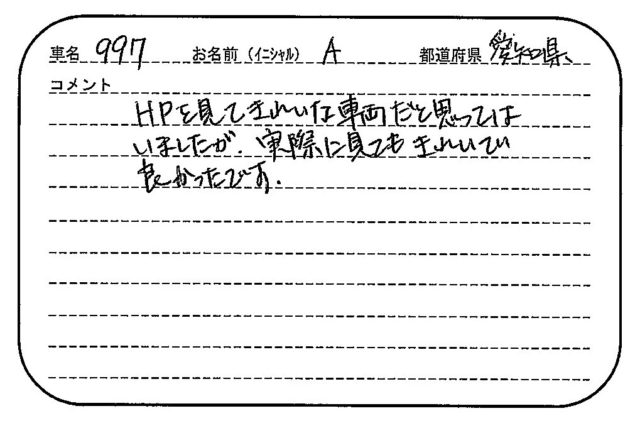 車名 997 お名前(イニシャル) A 都道府県 愛知県
コメント
HPを見てきれいな車両だと思っては
いましたが、実際に見てもきれいで
良かったです。